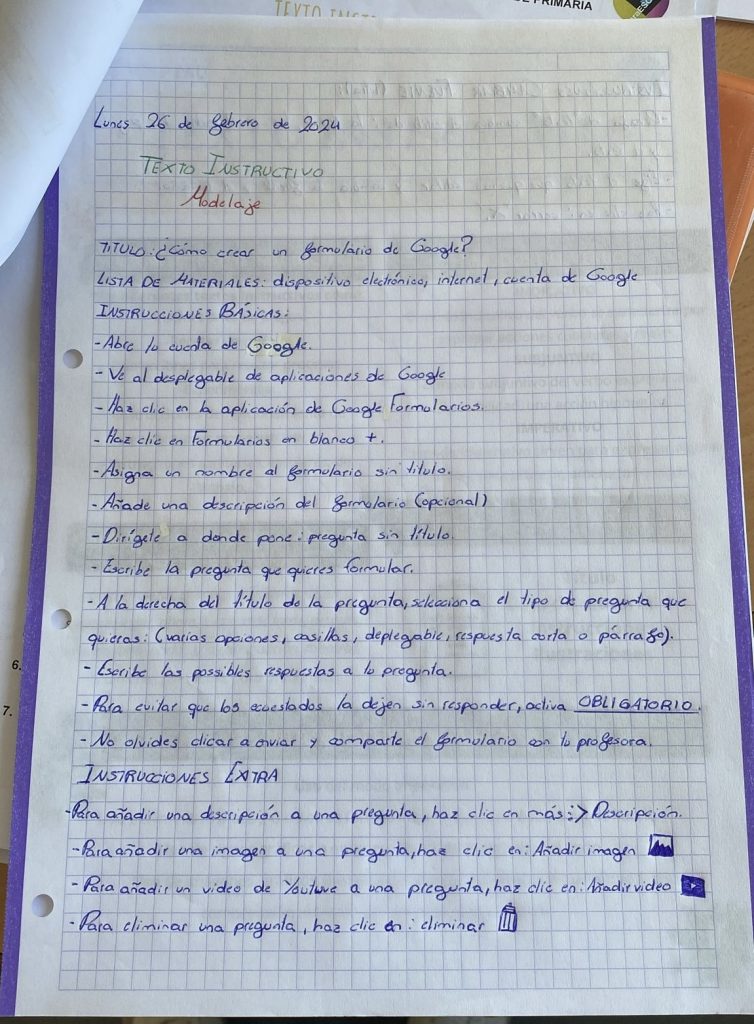 PRIMARIA
Lunes 26 de febrero de 2024
TEXTO INSTRUCTIVO
Modelaje
TITULO: ¿Cómo crear un formulario de Google?
LISTA DE MATERIALES: dispositivo electrónico, internet, cuenta de Google
INSTRUCCIONES BÁSICAS:
- Abre la cuenta de Google.
- Ve al desplegable de aplicaciones de Google
- Haz clic en la aplicación de Google Formularios.
- Haz clic en Formularios en blanco +.
- Asigna un nombre al formulario sin titulo.
- Añade una descripción del formulario (opcional)
- Dirígete a donde pone: pregunta sin título.
- Escribe la pregunta que quieres formular.
- A la derecha del título de la pregunta, selecciona el tipo de pregunta que
quieras: (varias opciones, casillas, deplegable, respuesta corta o párrafo).
- Escribe las possibles respuestas a la pregunta.
- Para evitar que los ecuestados la dejen sin responder, activa OBLIGATORIO.
- No olvides clicar a enviar y comparte el formulario con tu profesora.
INSTRUCCIONES EXTRA
- Para añadir una descripción a una pregunta, haz clic en más: > Descripción.
- Para añadir una imagen a una pregunta, haz clic en: Añadir imagen
- Para añadir un video de Youtuve a una pregunta, haz clic en: Añadir video
- Para eliminar una pregunta, haz clic en: eliminar
6.
7.